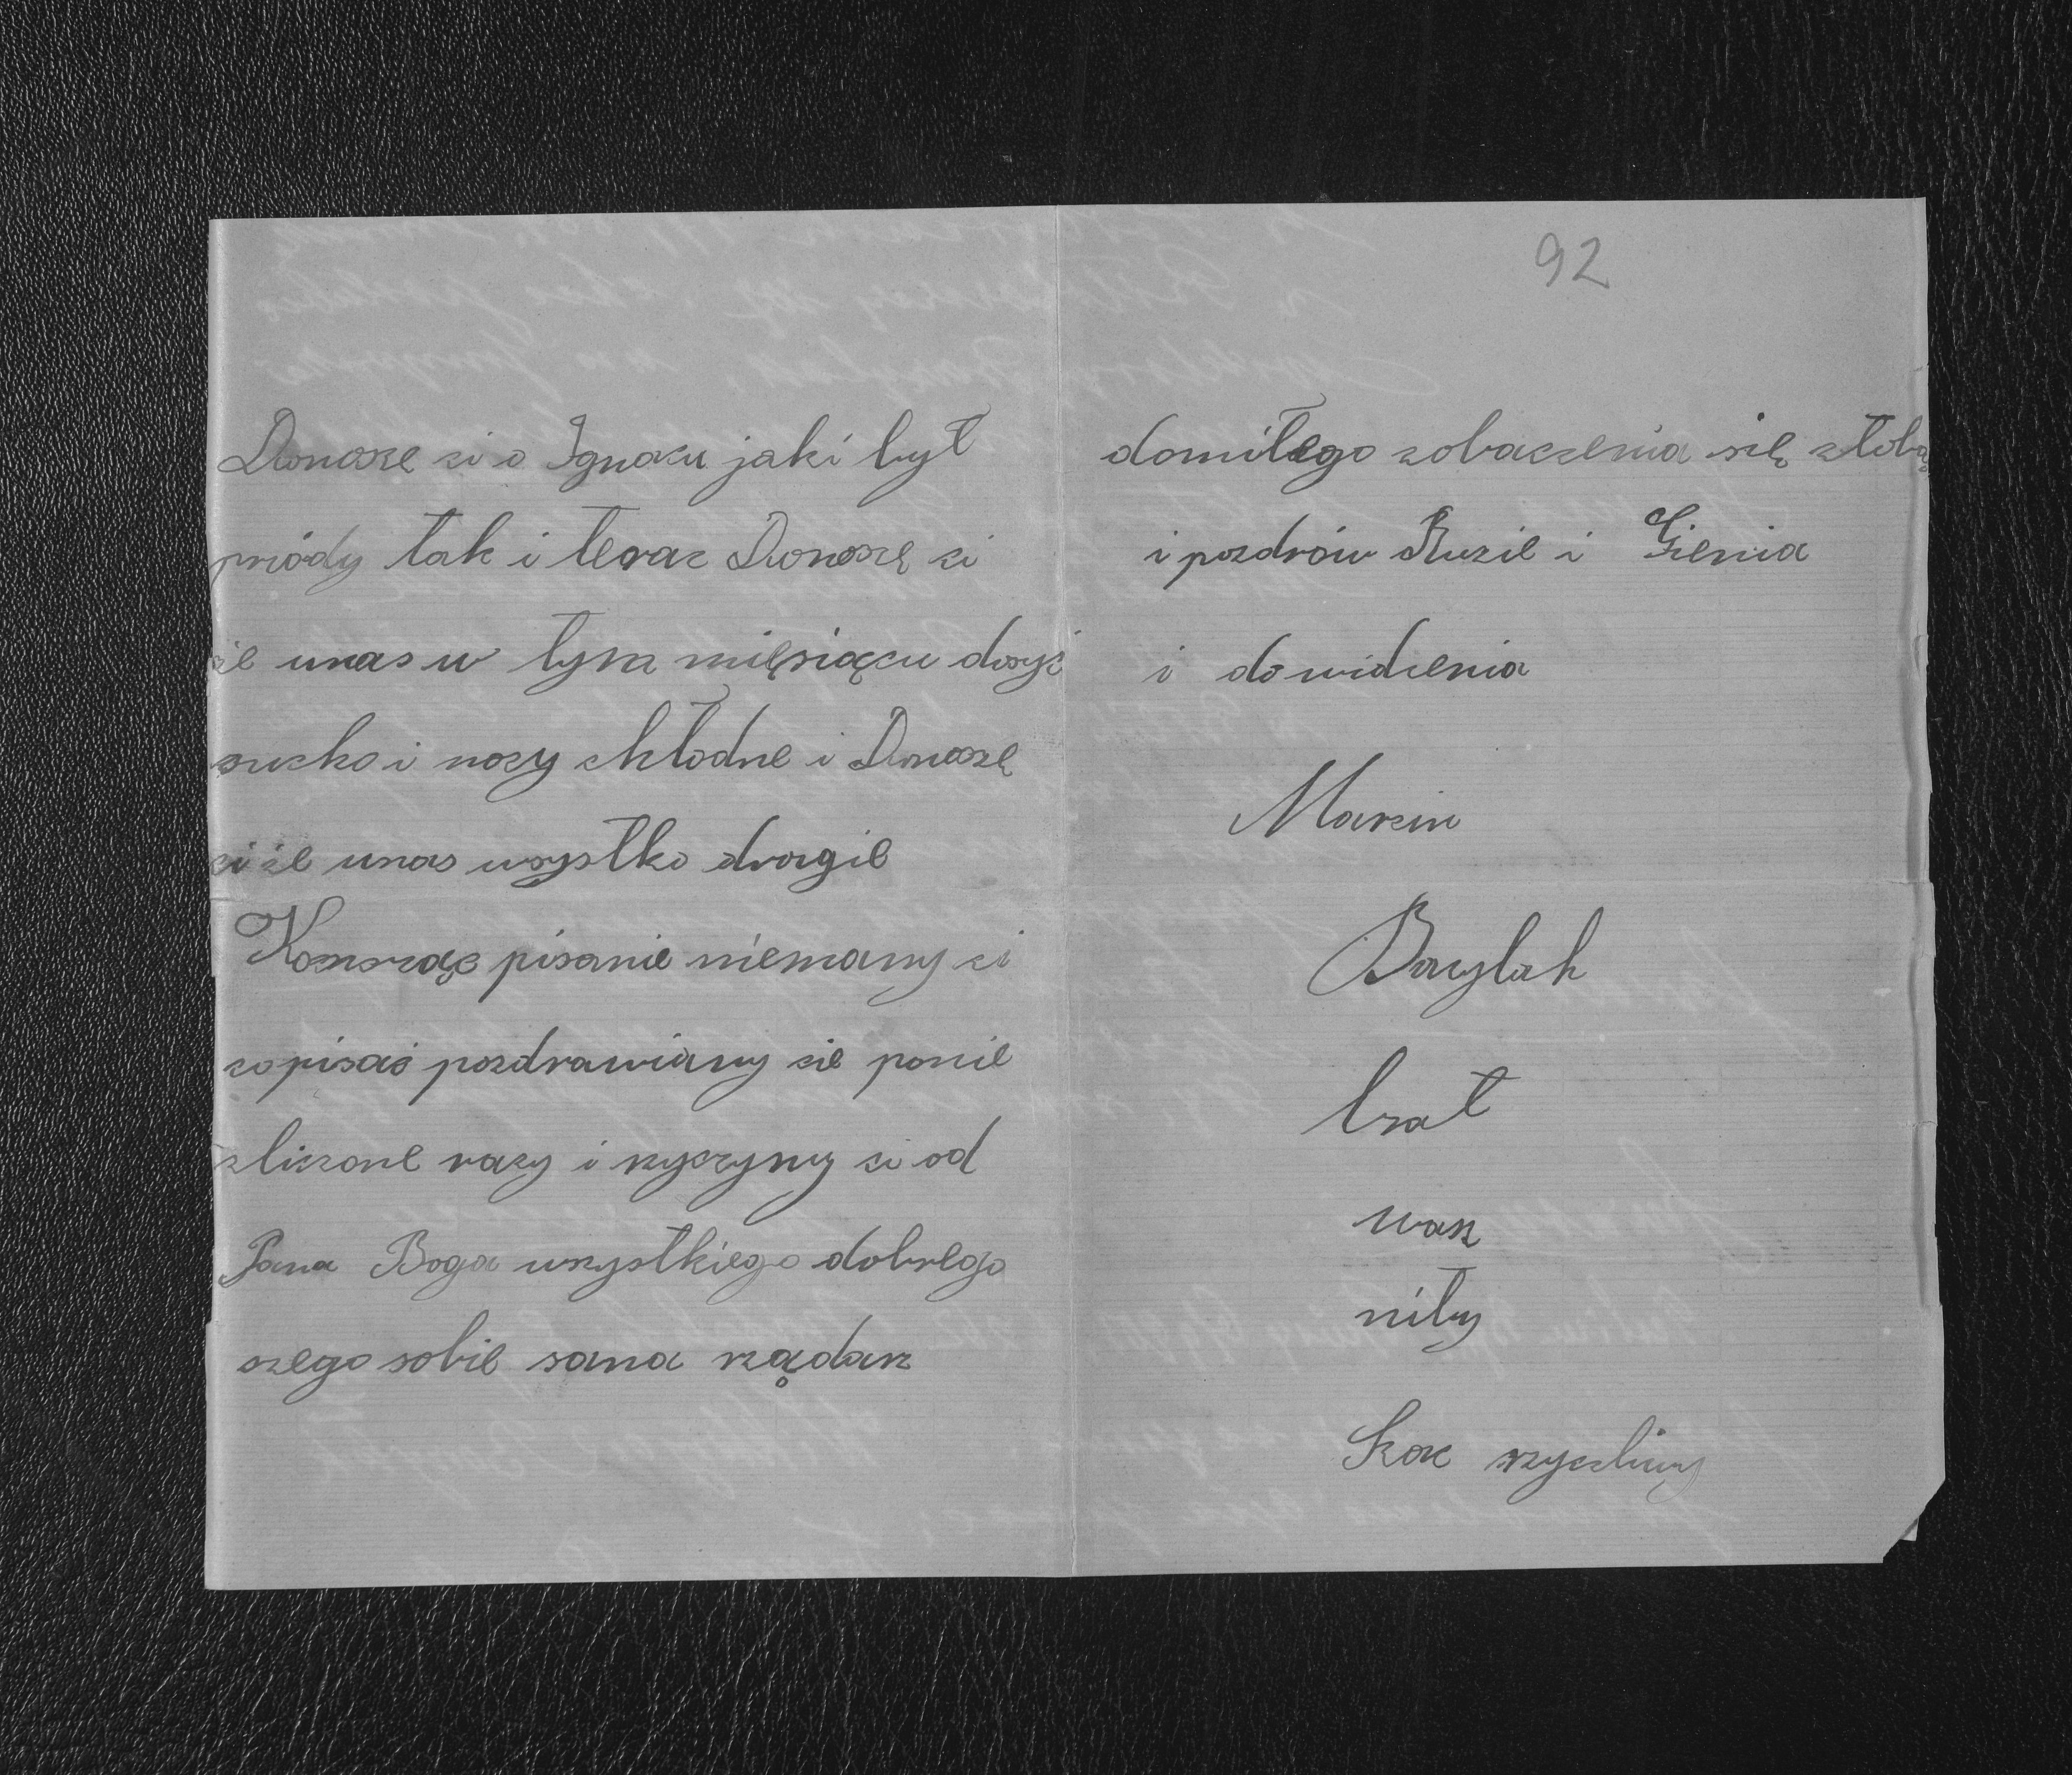 92
Donosze ci o Ignacu jaki był
priódy tak i teraz Donoszę ci
że unas w tym mięsiącu dosyć
sucho i nocy chłodne i Donoszę
ci że unas wszystko drogie
Konsząc pisanie niemamy ci
co pisać pozdrawiamy cie ponie
zliczone razy i rzyczymy ci od
Pana Boga wszystkiego dobrego
czego sobie sama rządasz
domiłego zobaczenia się stobą
i pozdrów Ruzie i Gienia
i dowidzenia
Marcin
brat
wasz
miły
rzyczliwy